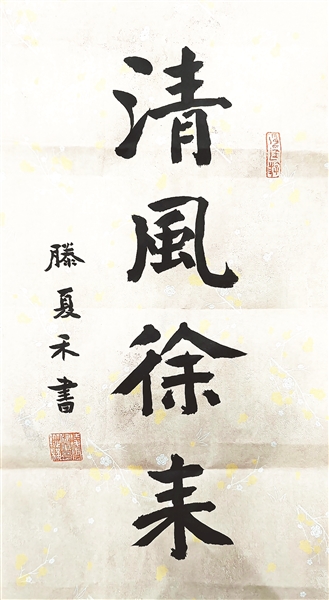 清風徐来
滕夏禾書